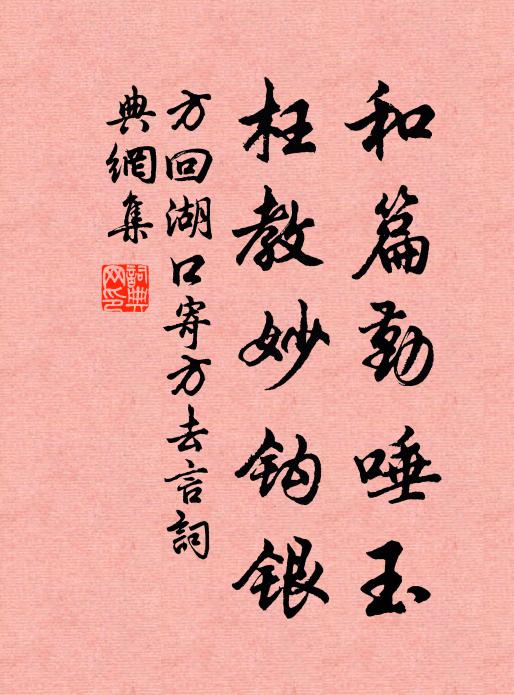 和篇勤唾玉
枉教妙鈎銀
方回湖口寄方去言詞
典網集
詞典網印